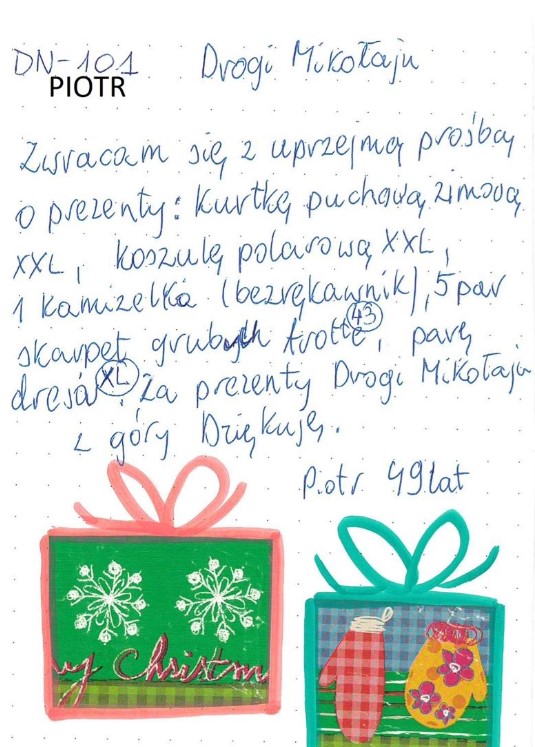 DN-101
PIOTR
Drogi Mikołaju
Zwracam się z uprzejmą prośbą
o prezenty: kurtkę puchową zimową
XXL, koszulę polarową XXL,
1 kamizelka (bezrękawnik), 5 par
skarpet grubych frotte 43, parę
dresów XL. Za prezenty Drogi Mikołaju
z góry Dziękuję.
Piotr 49 lat
y Christm